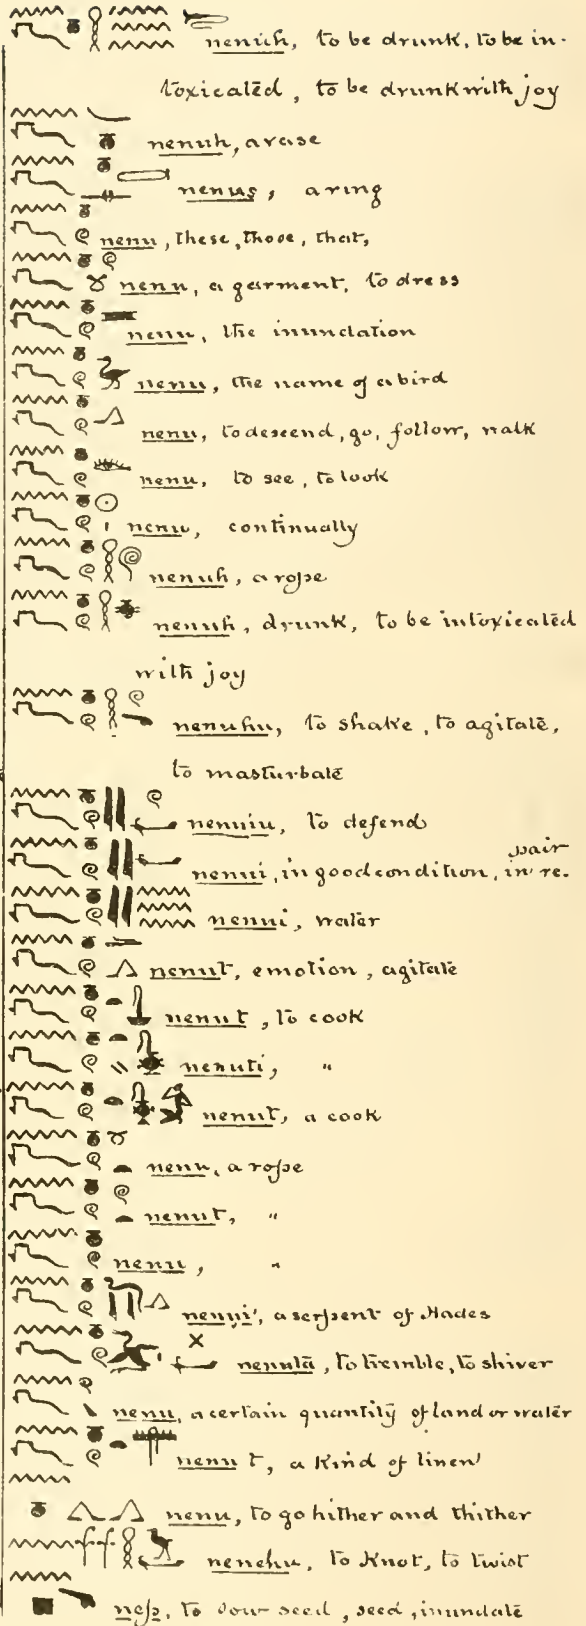 nenuh, to be drunk, to be in-
toxicated, to be drunk with joy
nenuh, a vase
nenus, a ring
nenu, these, those, that,
nenu, a garment, to dress
nenu, the inundation
nenu, the name of a bird
nenu, to descend, go, follow, walk
nenu, to see, to look
nenu, continually
nenuh, a rope
nenuh, drunk, to be intoxicated
with joy
nenuhu, to shake, to agitate,
to masturbate
nenuiu, to defend
pair
nenui, in good condition, in re-
nenui, water
nenut, emotion, agitate
nenut, to cook
nenuti, "
nenut, a cook
nenu, a rope
nenut, "
nenu, "
nenui, a serpent of Hades
nenutā, to tremble, to shiver
nenu, a certain quantity of land or water
nenut, a kind of linen
nenu, to go hither and thither
nenehu, to knot, to twist
nep, to sow seed, seed, inundate